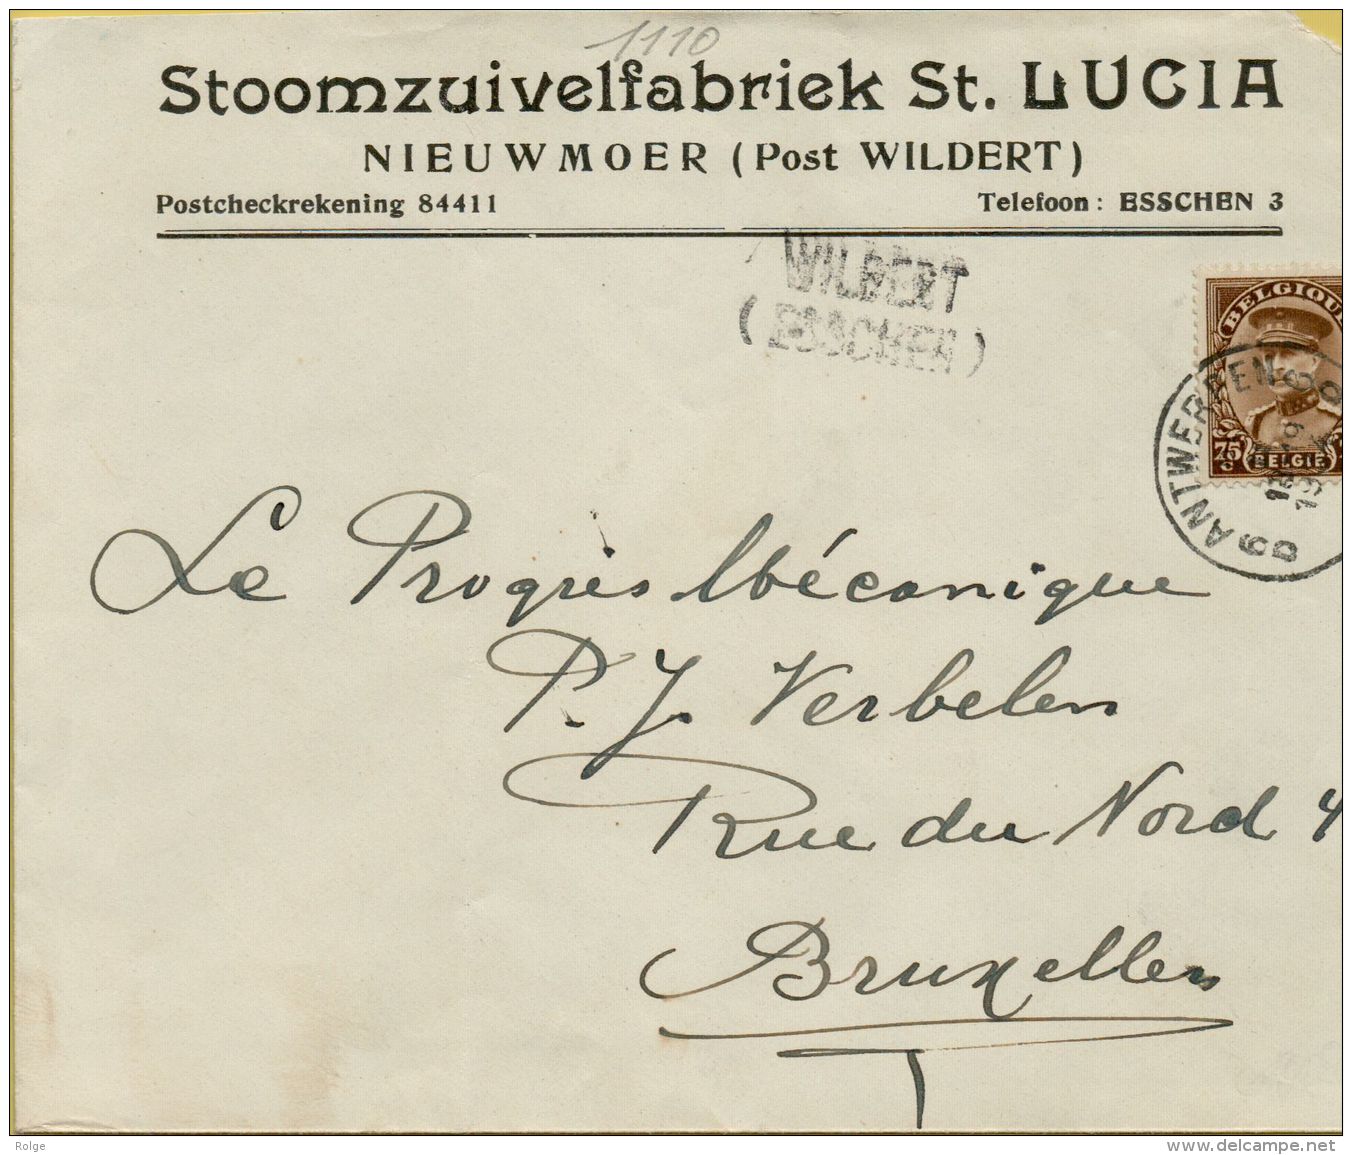 1110
Stoomzuivelfabriek St. LUCIA
NIEUWMOER (Post WILDERT)
Postcheckrekening 84411 Telefoon: ESSCHEN 3
WILDERT
(ESSCHEN)
BELGIQUE
75
C
BELGIË
ANTWERPEN
Le Progrès Mécanique
P. J. Verbelen
Rue du Nord 4
Bruxelles
Rolge
www.delcampe.net